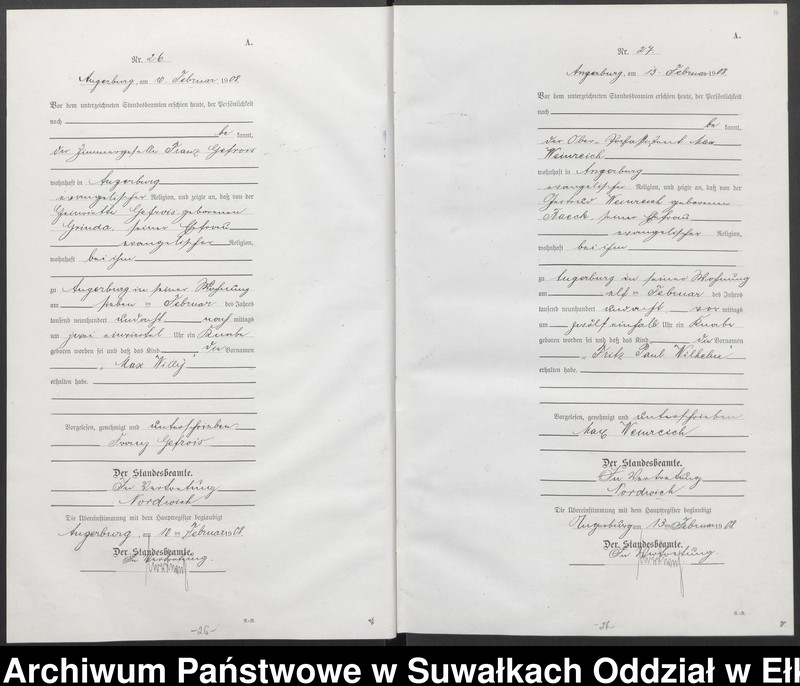 A.
Nr. 26
Angerburg, am 10. Februar 1908.
Vor dem unterzeichneten Standesbeamten erschien heute, der Persönlichkeit
nach
be kannt,
der Zimmergeselle Franz Gefrois
wohnhaft in Angerburg
evangelischer Religion, und zeigte an, daß von der
Henriette Gefrois geborenen
Grinda, seiner Ehefrau
evangelischer Religion,
wohnhaft bei ihm
zu Angerburg in seiner Wohnung
am sieben ten Februar des Jahres
tausend neunhundert undacht nach mittags
um zwei einviertel Uhr ein Knabe
geboren worden sei und daß das Kind die Vornamen
„Max Willy"
erhalten habe.
Vorgelesen, genehmigt und unterschrieben.
Franz Gefrois
Der Standesbeamte.
In Vertretung
Nordwich
Die Übereinstimmung mit dem Hauptregister beglaubigt
Angerburg, am 10 ten Februar 1908.
Der Standesbeamte.
In Vertretung.
-26-
A.
Nr. 27.
Angerburg, am 13. Februar 1908.
Vor dem unterzeichneten Standesbeamten erschien heute, der Persönlichkeit
nach
be kannt,
der Ober-Postassistent Max
Weinreich
wohnhaft in Angerburg
evangelischer Religion, und zeigte an, daß von der
Gertrud Weinreich geborenen
Kaeck, seiner Ehefrau
evangelischer Religion,
wohnhaft bei ihm
zu Angerburg in seiner Wohnung
am elf ten Februar des Jahres
tausend neunhundert undacht vor mittags
um zwölf einhalb Uhr ein Knabe
geboren worden sei und daß das Kind die Vornamen
„Fritz Paul Wilhelm"
erhalten habe.
Vorgelesen, genehmigt und unterschrieben
Max Weinreich
Der Standesbeamte.
In Vertretung
Nordwich
Die Übereinstimmung mit dem Hauptregister beglaubigt
Angerburg am 13 ten Februar 1908
Der Standesbeamte.
In Vertretung.
Archiwum Państwowe w Suwałkach Oddział w Ełk